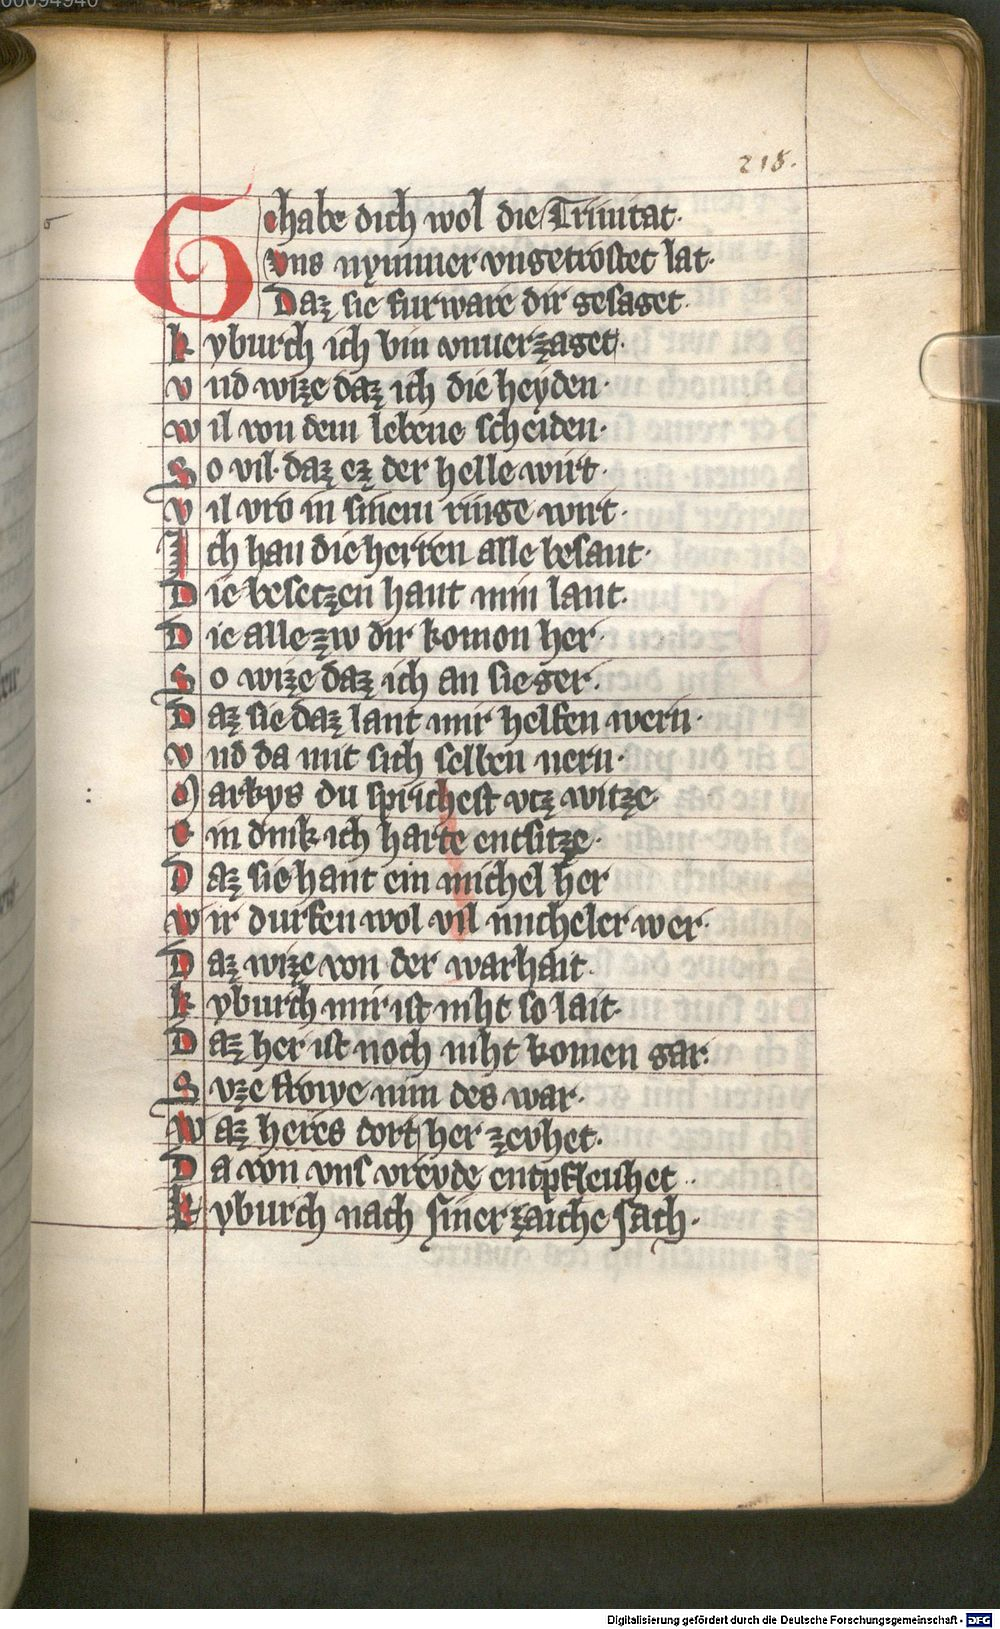 00094940
218.
Gehabe dich wol die Trinitat·
vns nymmer vngetrostet lat·
Daz sie fur ware dir gesaget·
kyburch ich bin vnuerzaget·
vnd wize daz ich die heyden·
wil von dem lebene scheiden·
So vil· daz ez der helle wirt·
vil vro in sinem ringe wirt·
Ich han die herren alle besant·
Die besetzen hant min lant·
Die alle zw dir komon her·
So wize daz ich an sie ger·
Daz sie daz lant mir helfen wern·
vnd da mit sich selben nern·
Markys du sprichest vtz witze·
ein dink ich harte entsitze·
Daz sie hant ein michel her
wir durfen wol vil micheler wer·
Daz wize von der warhait·
kyburch mir ist niht so lait·
Daz her ist noch niht komen gar·
Svze frowe nim des war·
Waz heres dort her zevhet·
Da von vns vrevde entpfleuhet·
Kyburch nach siner zaiche sach·
Digitalisierung gefördert durch die Deutsche Forschungsgemeinschaft - DFG